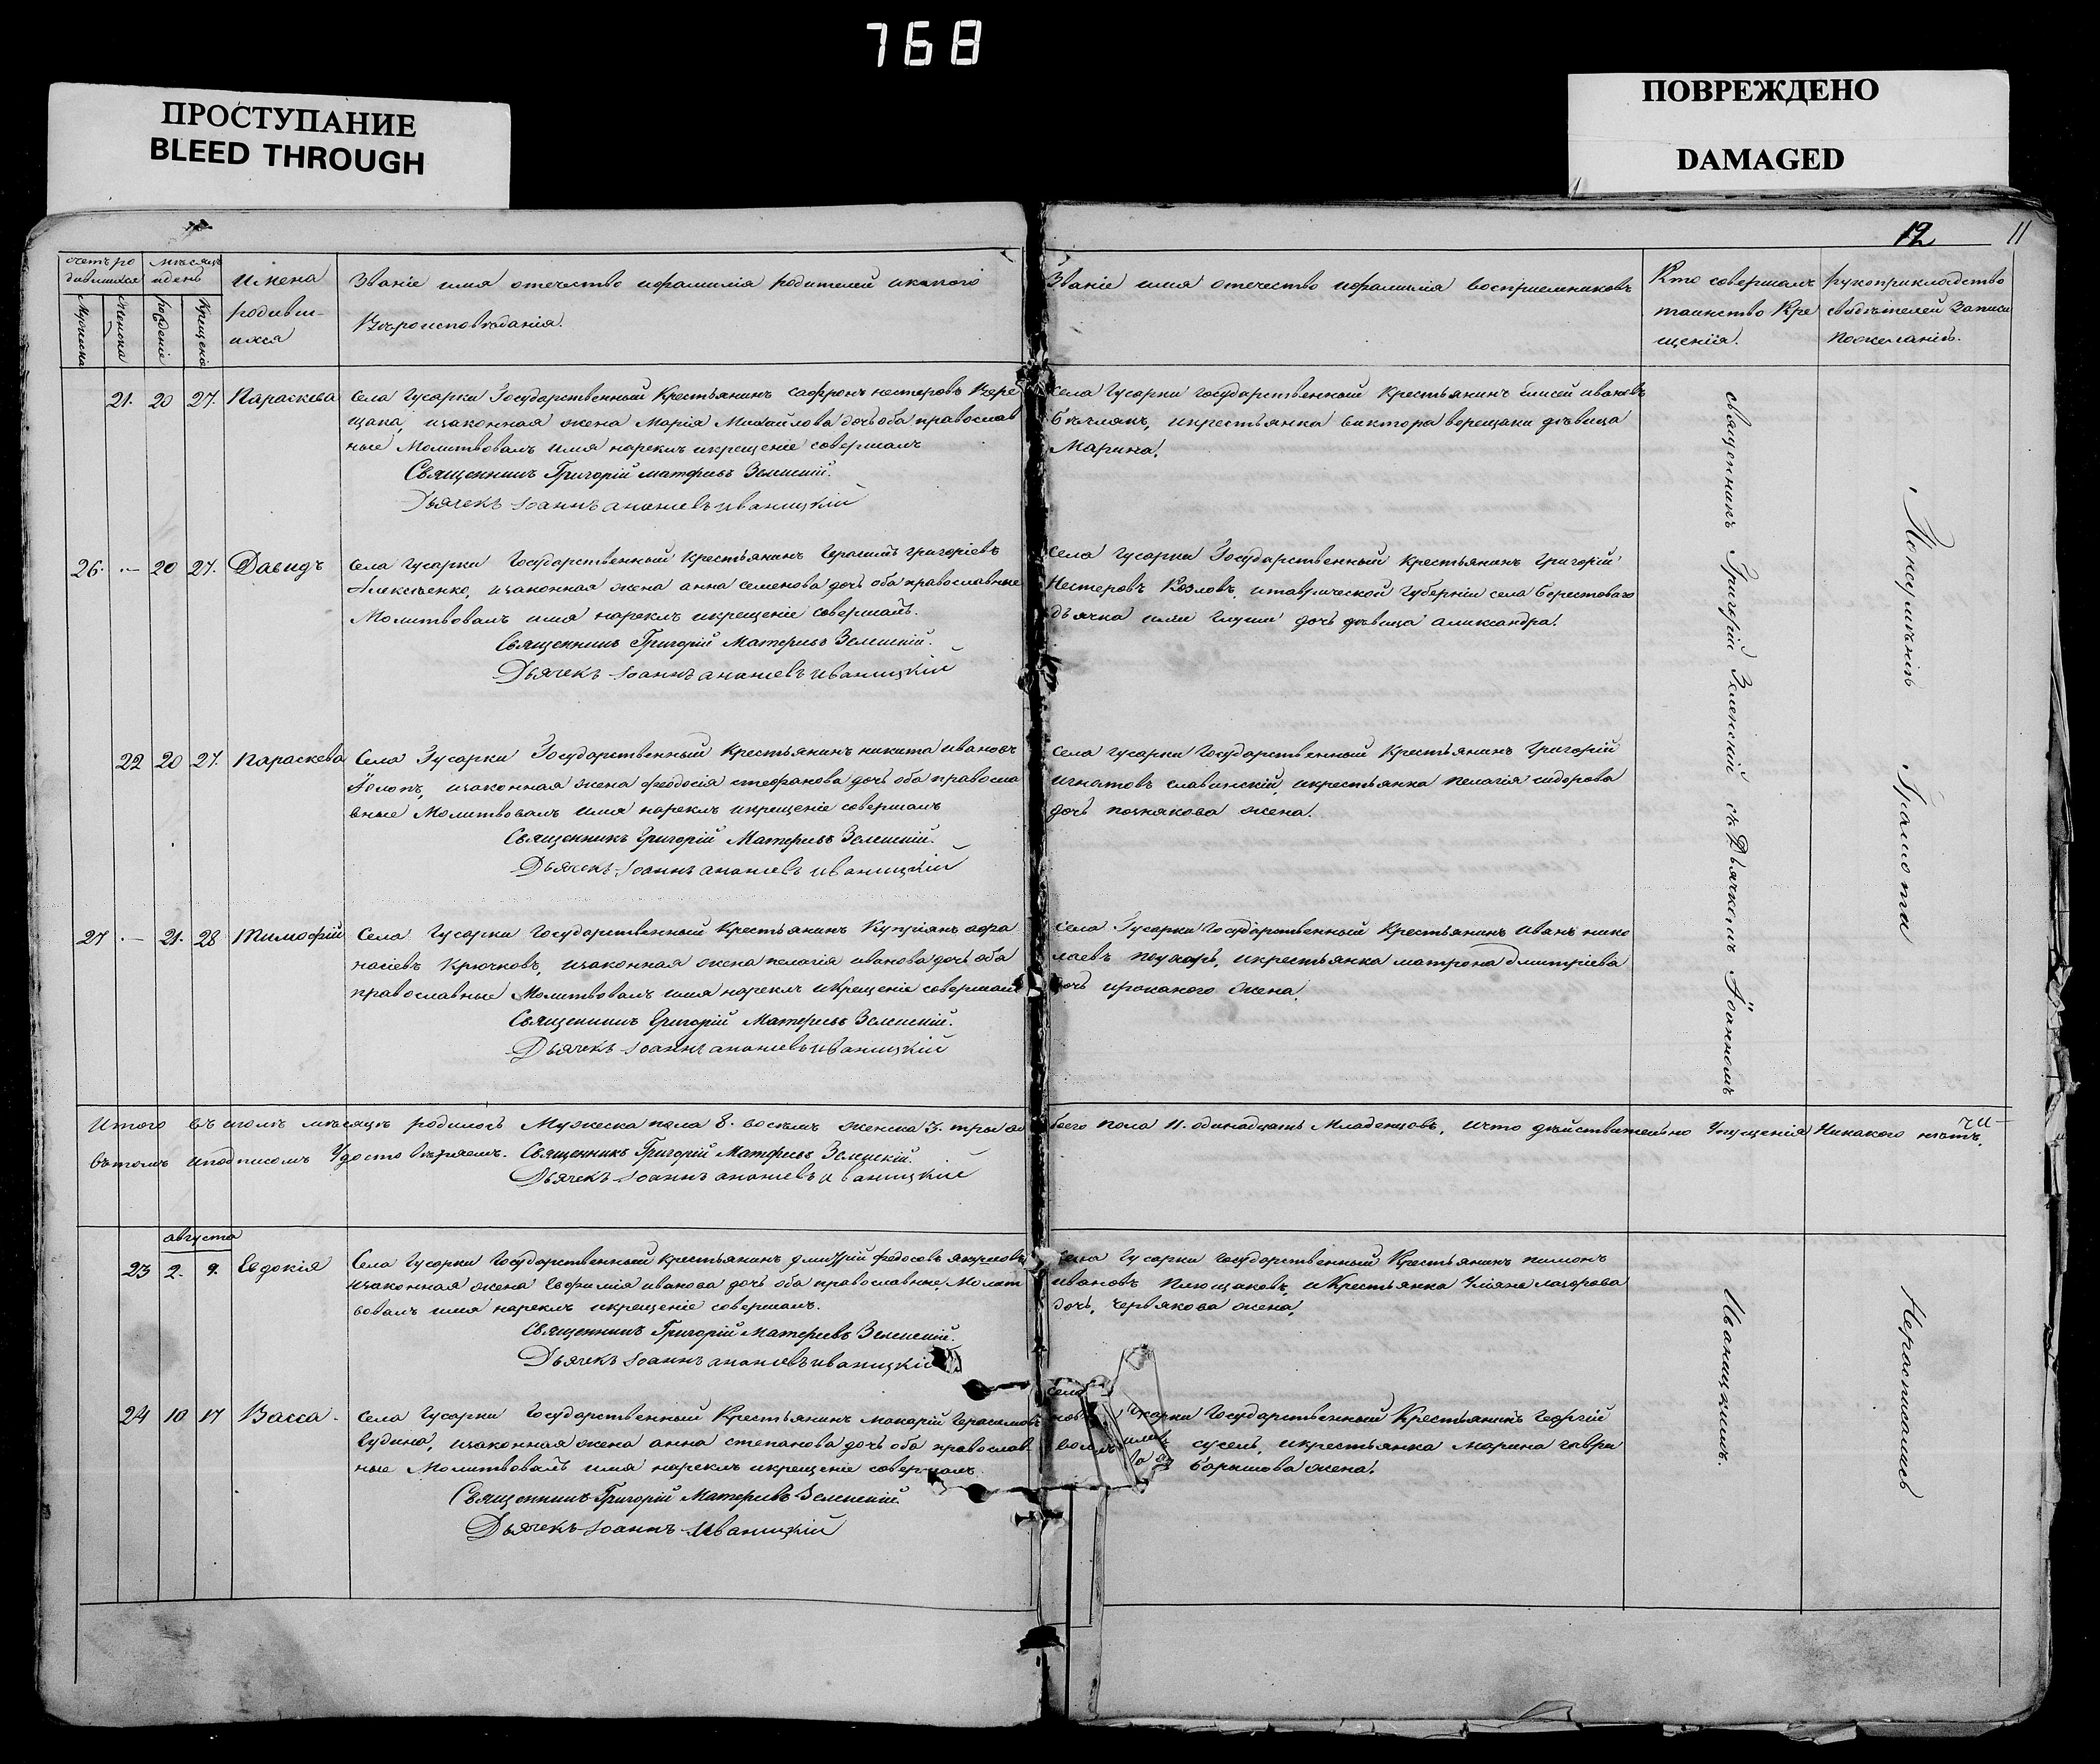 768
ПРОСТУПАНИЕ
BLEED THROUGH
ПОВРЕЖДЕНО
DAMAGED
12 11
счетъ ро
дившихся
Мужеска
Женска
мѣсяцъ
и день
рожденія
Крещенія
Имена
родивши-
ихся
Званіе имя отечество и фамилія родителей и какого
Вѣроисповѣданія.
Званіе имя отечество и фамилія восприемниковъ
Кто совершалъ
таинство Кре
щенія.
рукоприкладство
свидѣтелей записи
по желанію.
21. 20 27. Параскева
Села Гусарки Государственный Крестьянинъ Сафронъ нестеровъ Вере
щака, изаконная жена Марія Михайлова дочь оба православ
ные Молитвовалъ имя нарекъ икрещеніе совершалъ
Священникъ Григорій матфеевъ Зеленскій.
Дьячекъ Іоаннъ ананіевъ иваницкій
Села Гусарки государственный Крестьянинъ Елисей ивановъ
икрестьянка виктора верещаки дѣвица
Марина.
26. — 20 27. Давидъ
Села Гусарки Государственный Крестьянинъ Герасимъ григоріевъ
Алексѣенко, изаконная жена анна семенова дочь оба православные
Молитвовалъ имя нарекъ икрещеніе совершалъ.
Священникъ Григорій Матфеевъ Зеленскій.
Дьячекъ Іоаннъ ананіевъ иваницкій
Села Гусарки Государственный Крестьянинъ Григорій
Нестеровъ Козловъ, итаврической Губерніи села берестоваго
дьячка дочь дѣвица александра.
22 20 27. Параскева
Села Гусарки Государственный Крестьянинъ никита ивановъ
изаконная жена феодосія стефанова дочь оба правосла
вные Молитвовалъ имя нарекъ икрещеніе совершалъ
Священникъ Григорій Матфеевъ Зеленскій.
Дьячекъ Іоаннъ ананіевъ иваницкій
Села гусарки Государственный Крестьянинъ Григорій
игнатовъ славинскій, икрестьянка пелагія сидорова
дочь познякова жена.
27 — 21. 28 Тимофій
Села Гусарки Государственный Крестьянинъ Купріянъ афа
насіевъ Крючковъ, изаконная жена пелагія иванова дочь оба
православные Молитвовалъ имя нарекъ икрещеніе совершалъ
Священникъ Григорій Матфеевъ Зеленскій.
Дьячекъ Іоаннъ ананіевъ иваницкій
Села Гусарки Государственный Крестьянинъ иванъ нико
лаевъ икрестьянка матрона дмитріева
дочь жена.
Итого въ іюлѣ мѣсяцѣ родилось Мужеска пола 8. восемь женска 3. три обоего пола 11. одинадцать Младенцовъ, ичто дѣйствительно Упущенія Никакого нѣтъ,
вътомъ иподписомъ Удостовѣряемъ. Священникъ Григорій Матфеевъ Зеленскій.
Дьячекъ Іоаннъ ананіевъ иваницкій
августа
23 2. 9. Евдокія
Села Гусарки Государственный крестьянинъ дмитрій федосовъ
изаконная жена Евфимія иванова дочь оба православные, Молит
вовалъ имя нарекъ икрещеніе совершалъ.
Священникъ Григорій Матфеевъ Зеленскій.
Дьячекъ Іоаннъ ананіевъ иваницкій
Села Гусарки Государственный Крестьянинъ пимонъ
ивановъ и Крестьянка Уліяна лазорова
дочь, червякова жена.
24 10 17 Васса
Села Гусарки Государственный Крестьянинъ макарій Герасимовъ
изаконная жена анна степанова дочь оба православ
ные Молитвовалъ имя нарекъ икрещеніе совершалъ
Священникъ Григорій Матфеевъ Зеленскій.
Дьячекъ Іоаннъ Иваницкій
Села Гусарки Государственный Крестьянинъ Георгій
сусель, икрестьянка марина гаври
жена.
священникъ Григорій Зеленскій съ Дьячкомъ Іоанномъ
Иваницкимъ.
Понеумѣнію Грамоты
Нерасписались